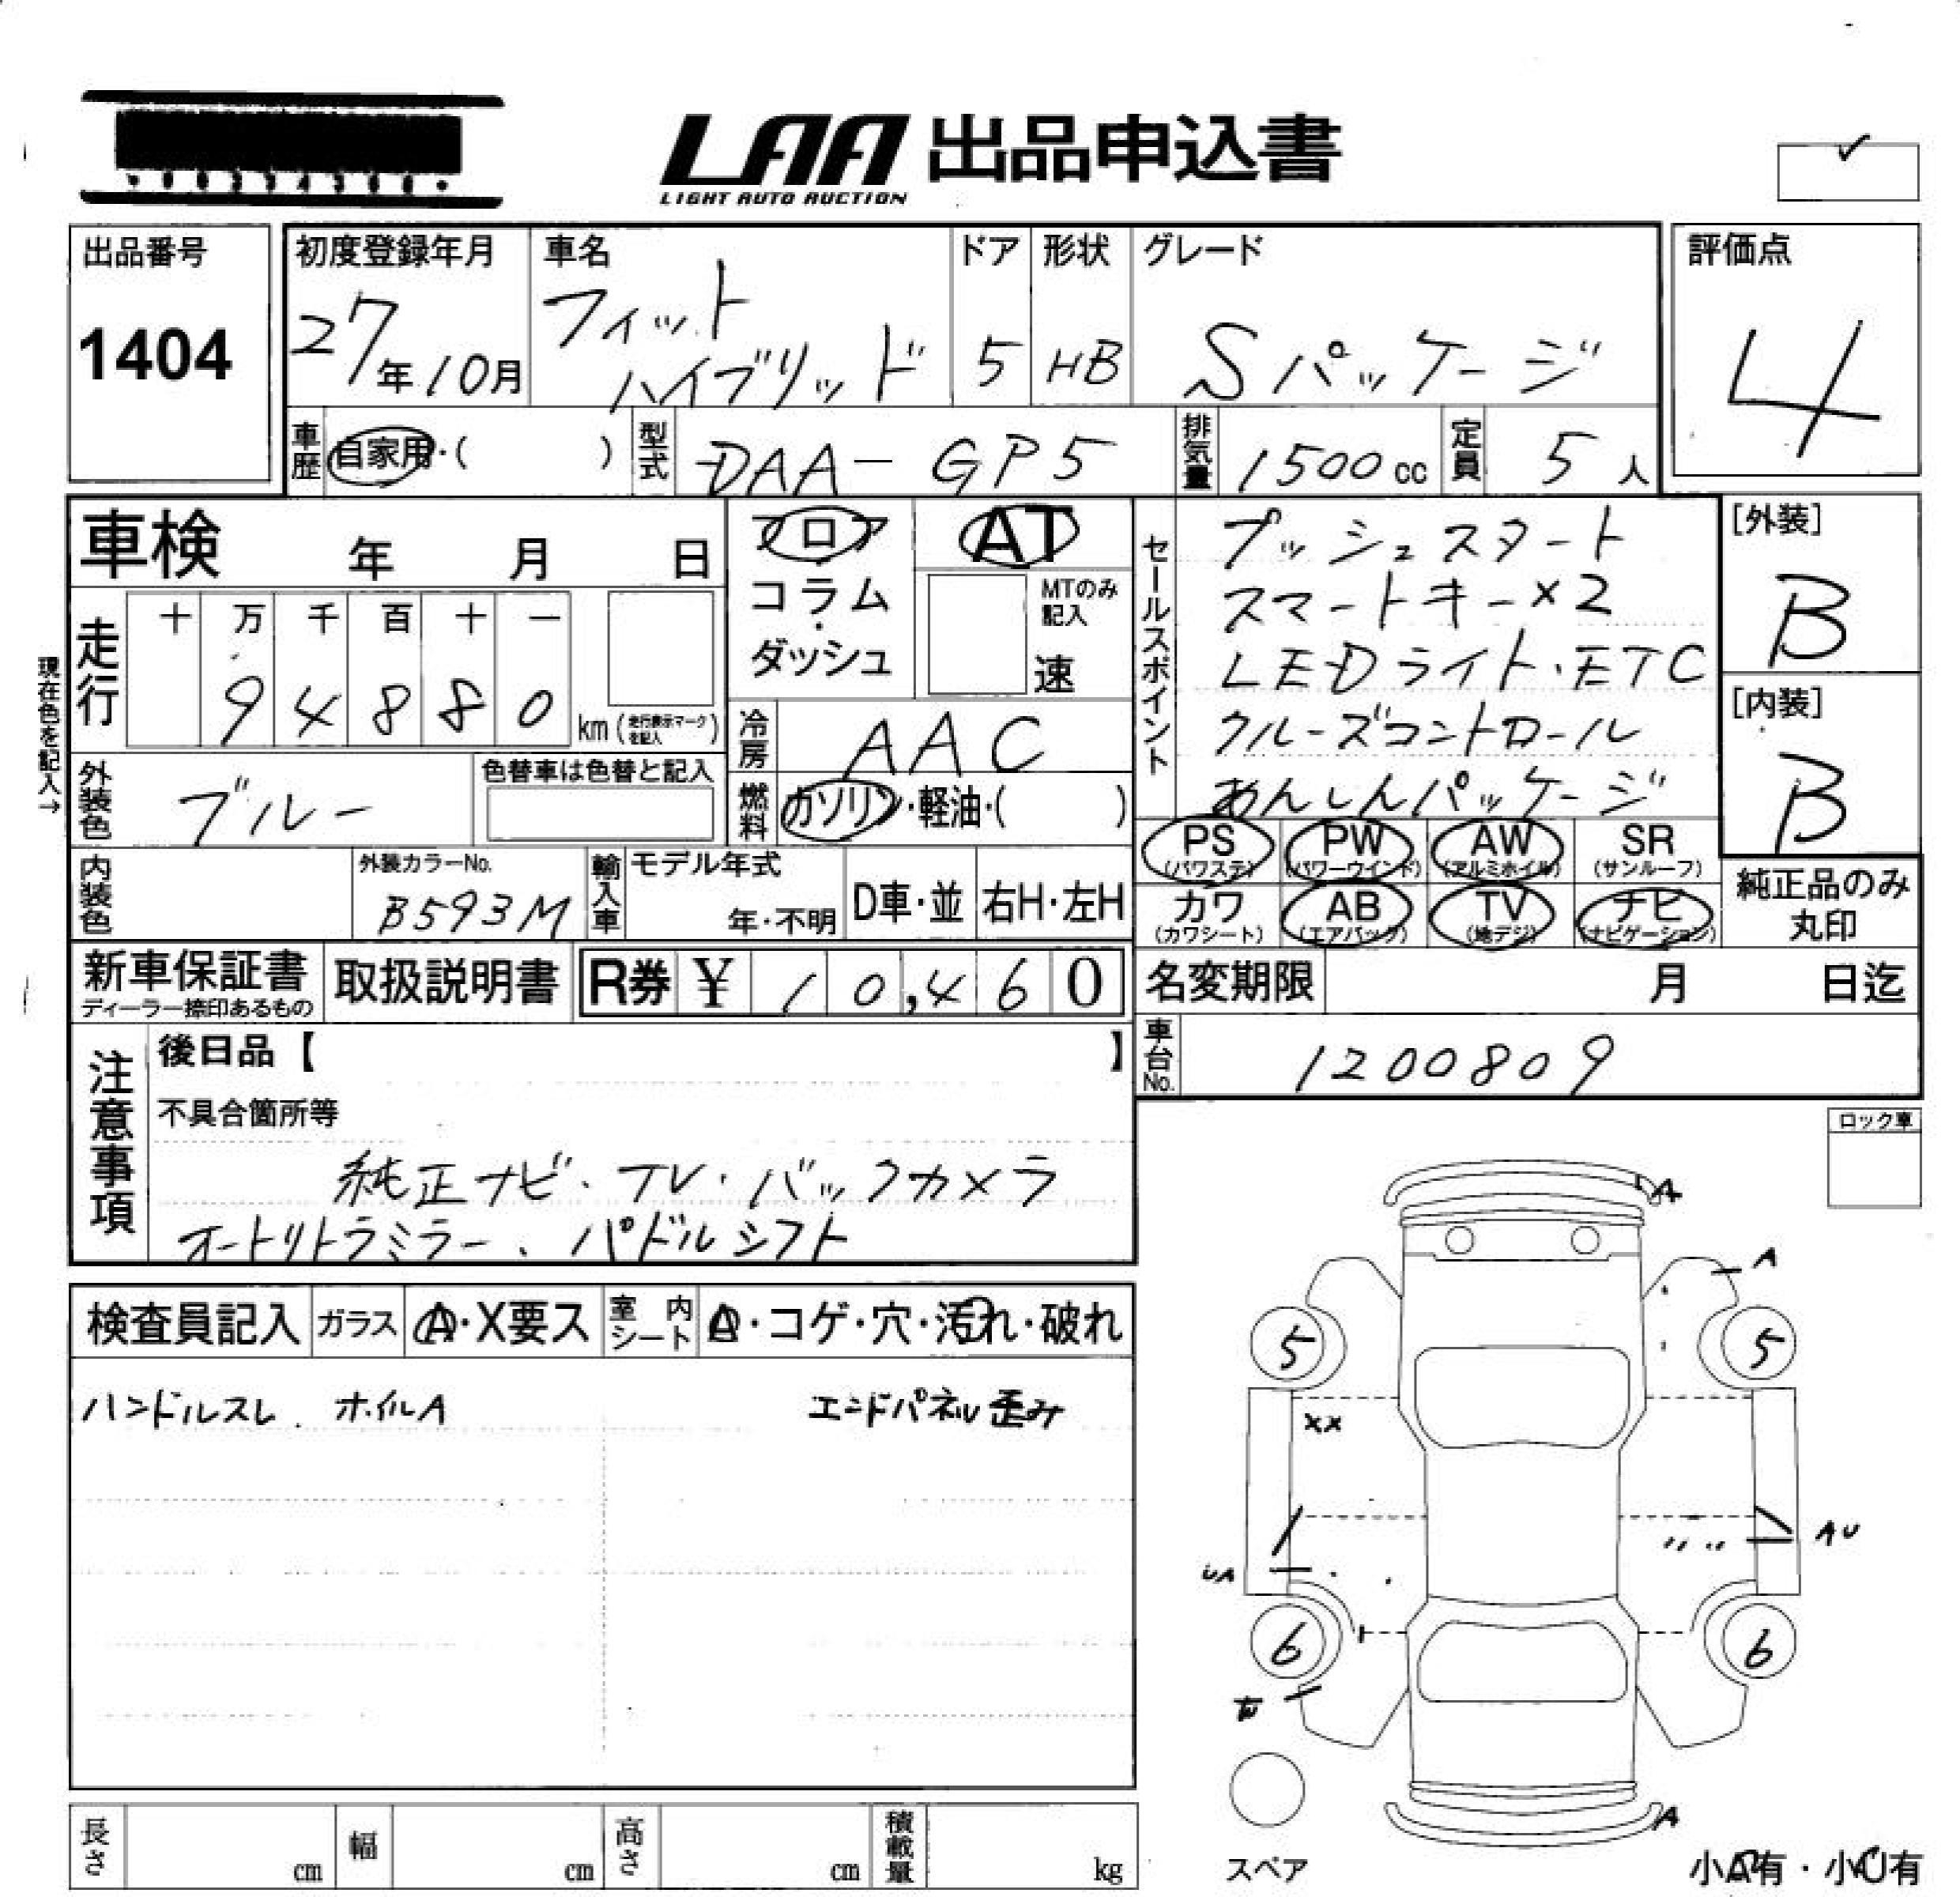 LAA 出品申込書
LIGHT AUTO AUCTION
出品番号
1404
初度登録年月
27年10月
車名
フィット
ハイブリッド
ドア
5
形状
HB
グレード
Sパッケージ
評価点
4
車歴
自家用・( )
型式
DAA-GP5
排気量
1500cc
定員
5人
車検 年 月 日
フロア
コラム
ダッシュ
AT
MTのみ
記入
速
セールスポイント
プッシュスタート
スマートキー×2
LEDライト・ETC
クルーズコントロール
あんしんパッケージ
[外装]
B
[内装]
B
現在色を記入→
走行
十 万 千 百 十 一
9 4 8 8 0
km (走行表示マークを記入)
冷房
AAC
燃料
ガソリン・軽油・( )
外装色
ブルー
色替車は色替と記入
内装色
外装カラーNo.
B593M
輸入車
モデル年式
年・不明
D車・並
右H・左H
PS
(パワステ)
PW
(パワーウインド)
AW
(アルミホイル)
SR
(サンルーフ)
カワ
(カワシート)
AB
(エアバック)
TV
(地デジ)
ナビ
(ナビゲーション)
純正品のみ
丸印
新車保証書
ディーラー捺印あるもの
取扱説明書
R券 ¥ 10,460
名変期限 月 日迄
車台No.
1200809
注意事項
後日品【 】
不具合箇所等
純正ナビ・TV・バックカメラ
オートリトラミラー、パドルシフト
ロック車
検査員記入
ガラス
A・X要ス
室内
シート
A・コゲ・穴・汚れ・破れ
ハンドルスレ. ホイルA
エンドパネル歪み
A
A
5
5
XX
AU
UA
6
6
A
スペア
小A有・小U有
長さ cm
幅 cm
高さ cm
積載量 kg